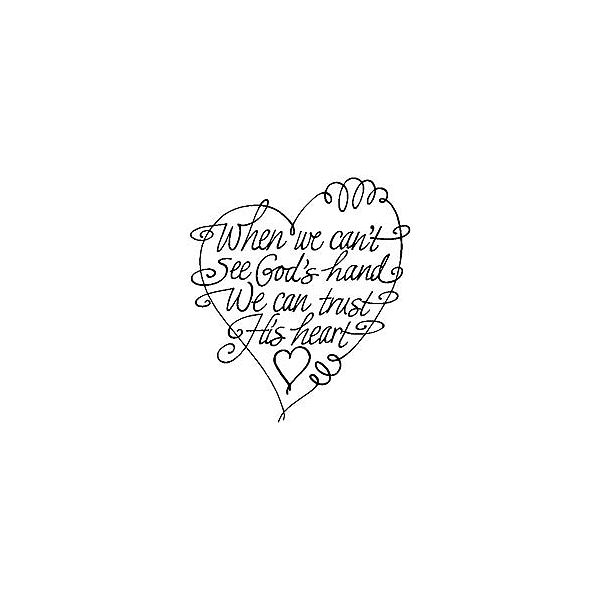 When we can't
See God's hand
We can trust
His heart